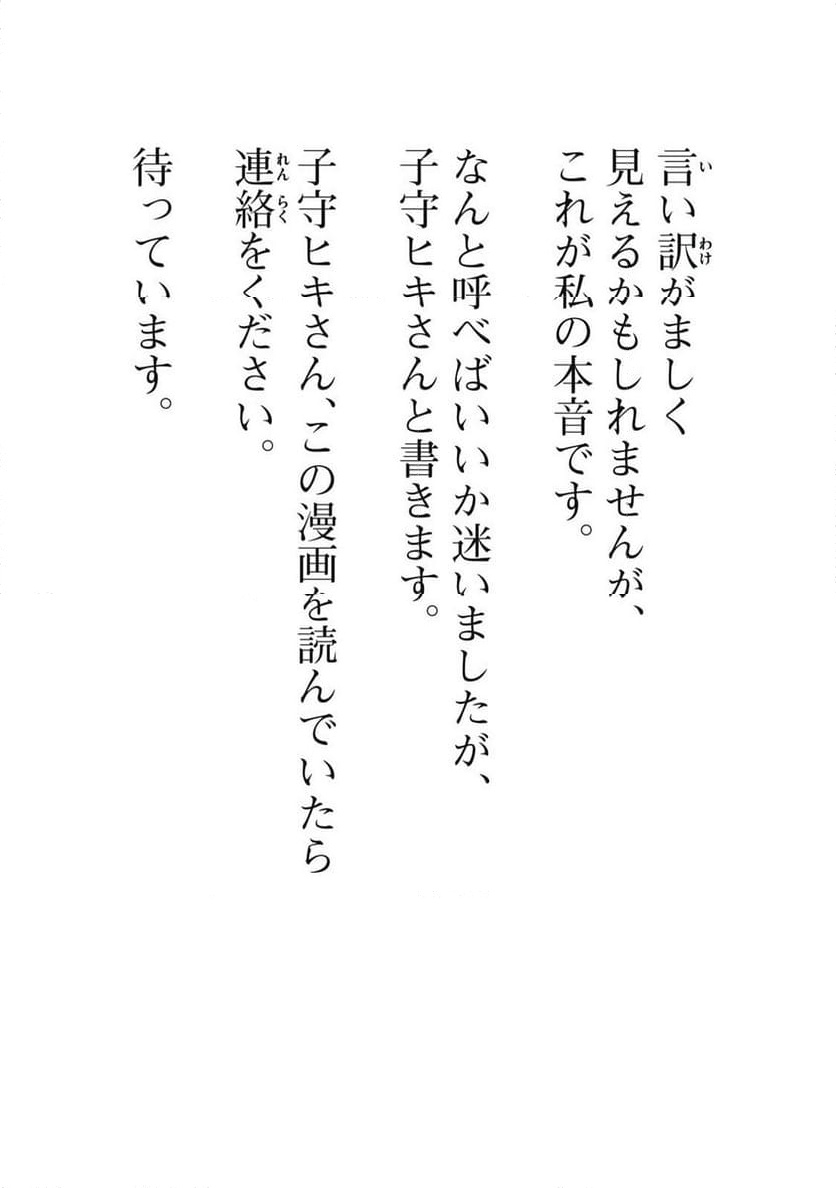 言い訳がましく
見えるかもしれませんが、
これが私の本音です。
なんと呼べばいいか迷いましたが、
子守ヒキさんと書きます。
子守ヒキさん、この漫画を読んでいたら
連絡をください。
待っています。